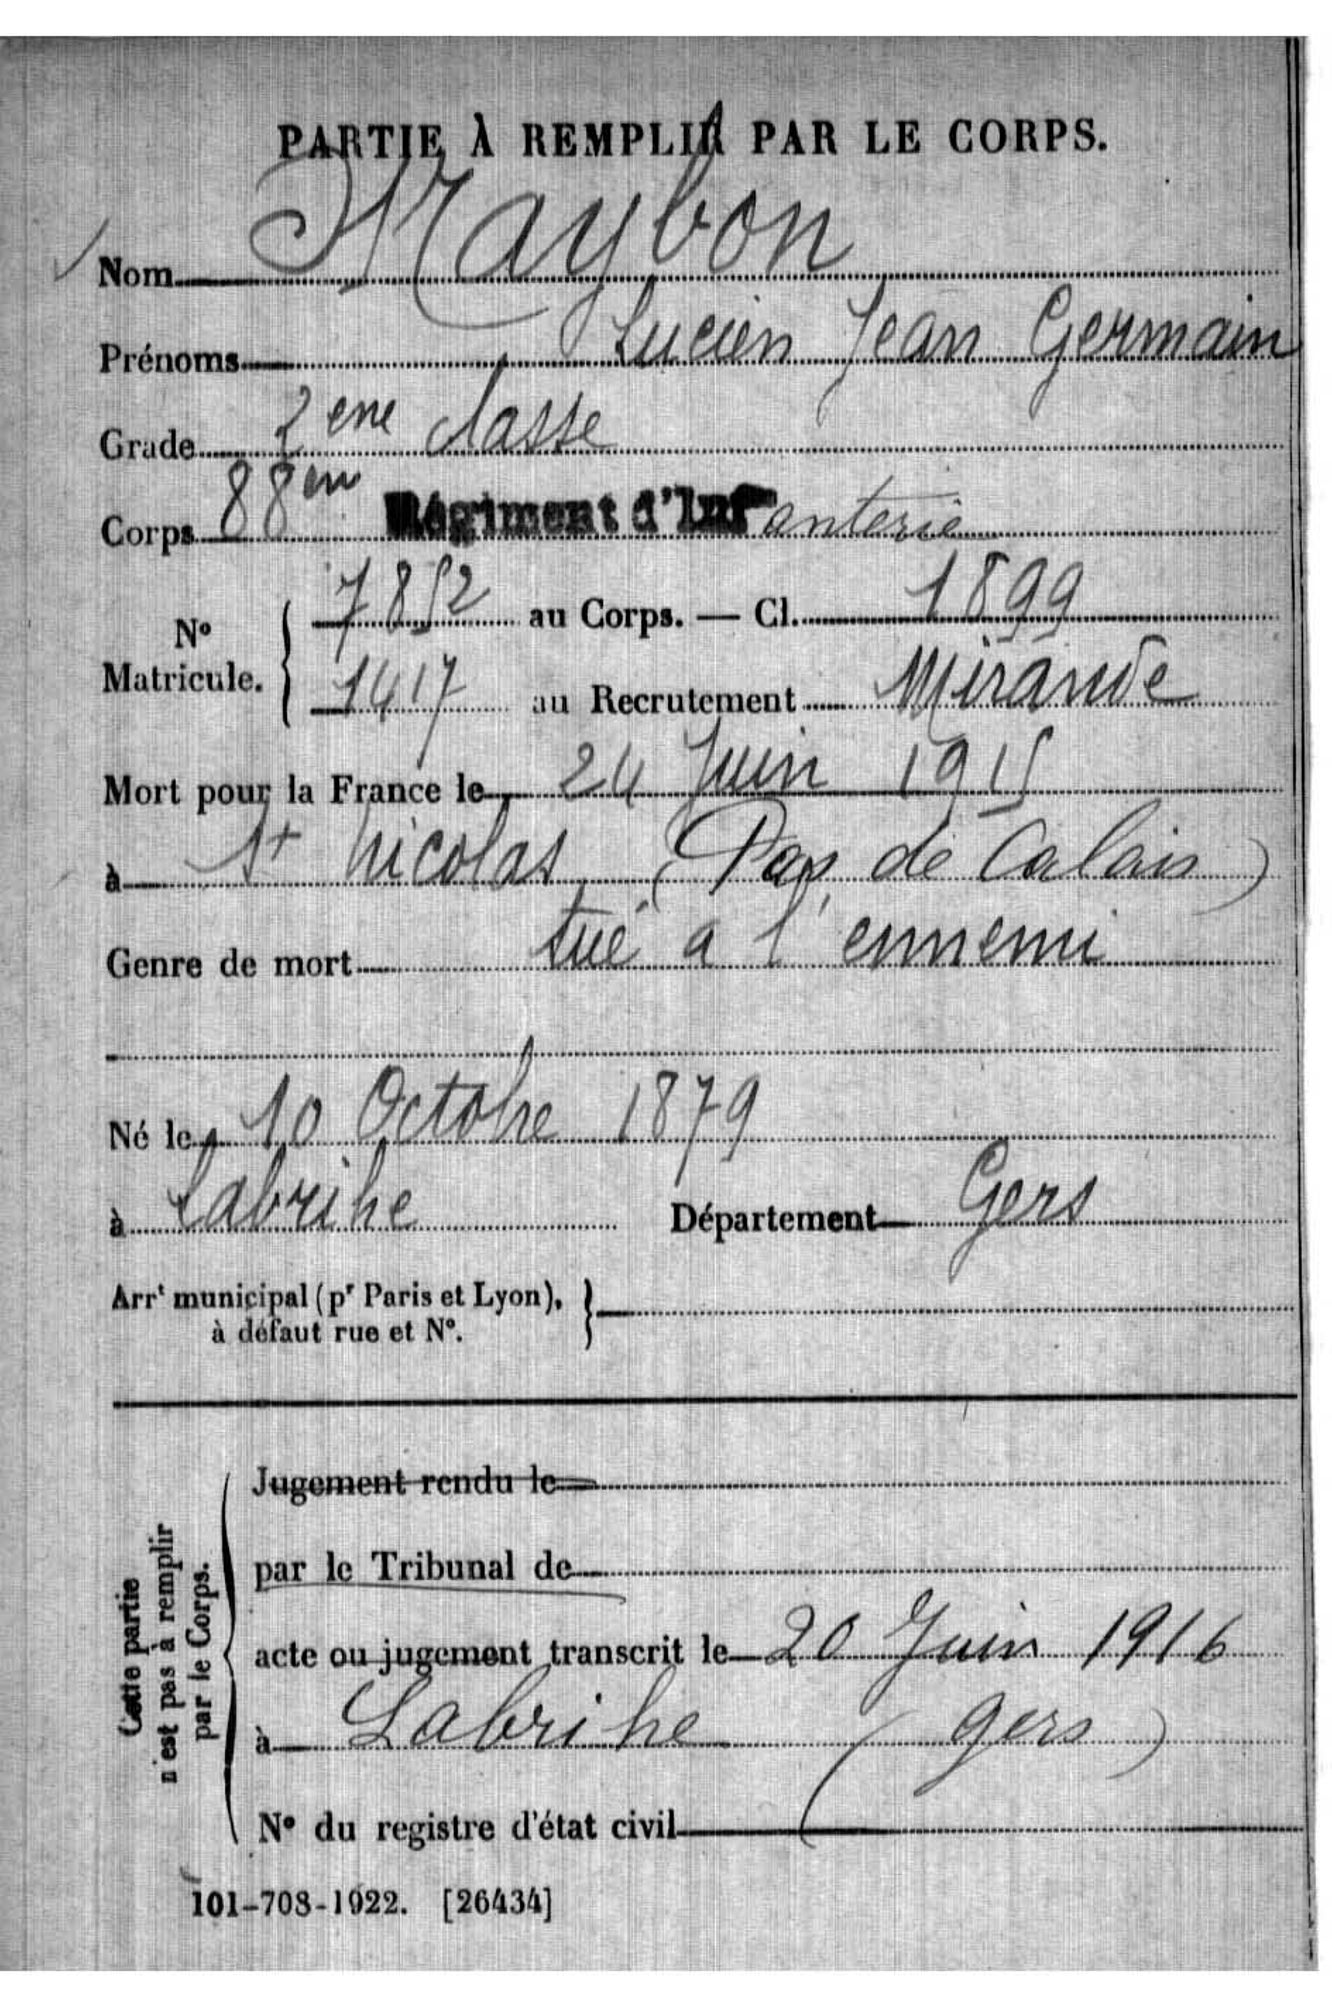 PARTIE À REMPLIR PAR LE CORPS.
Nom Maybon
Prénoms Lucien Jean Germain
Grade 2ene classe
Corps 88em Régiment d'Infanterie
N° Matricule. { 7852 au Corps. — Cl. 1899
1417 au Recrutement Mirande
Mort pour la France le 24 Juin 1915
à St Nicolas (Pas de Calais)
Genre de mort tué a l'ennemi
Né le 10 Octobre 1879
à Labrihe Département Gers
Arrt municipal (pr Paris et Lyon), }
à défaut rue et N°.
Cette partie
n'est pas à remplir
par le Corps.
Jugement rendu le
par le Tribunal de
acte ou jugement transcrit le 20 Juin 1916
à Labrihe (Gers)
N° du registre d'état civil
101-708-1922. [26434]